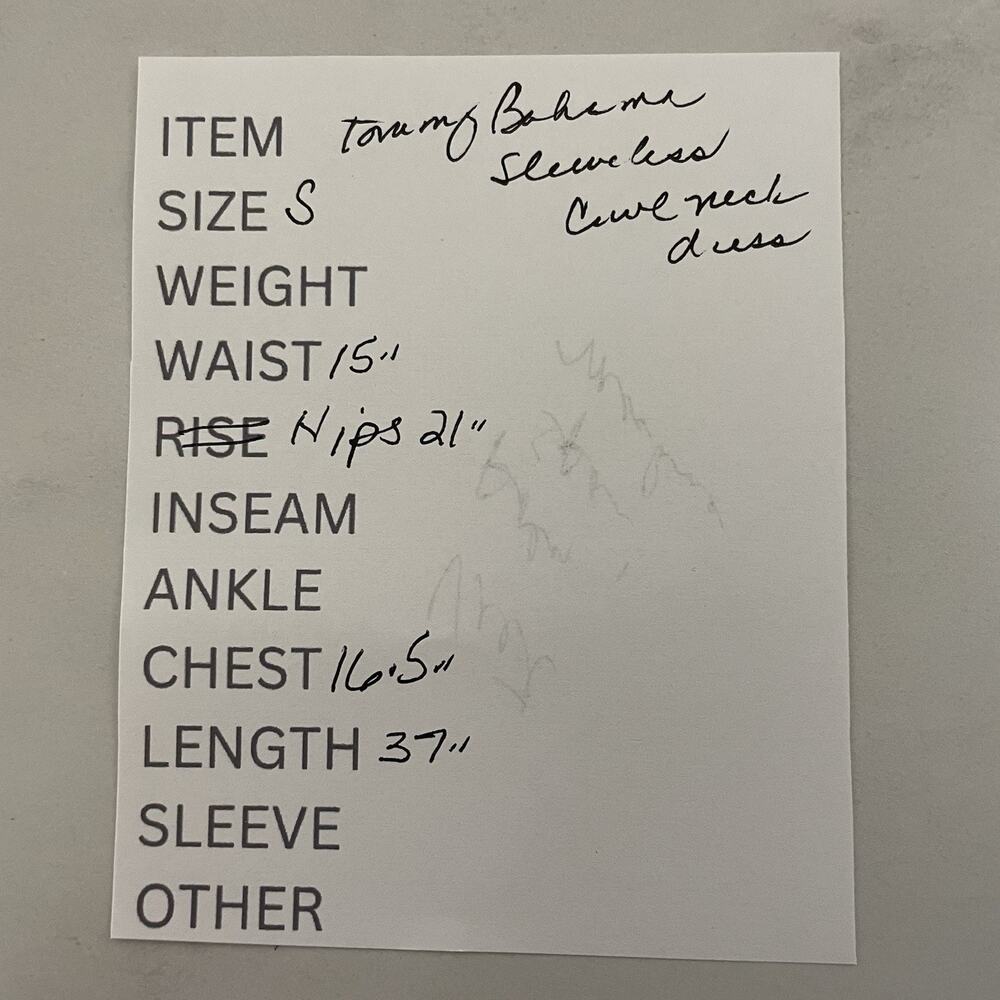 ITEM Tommy Bahama
Sleeveless
SIZE S
Cowl neck
dress
WEIGHT
WAIST 15"
RISE Hips 21"
INSEAM
ANKLE
CHEST 16.5"
LENGTH 37"
SLEEVE
OTHER